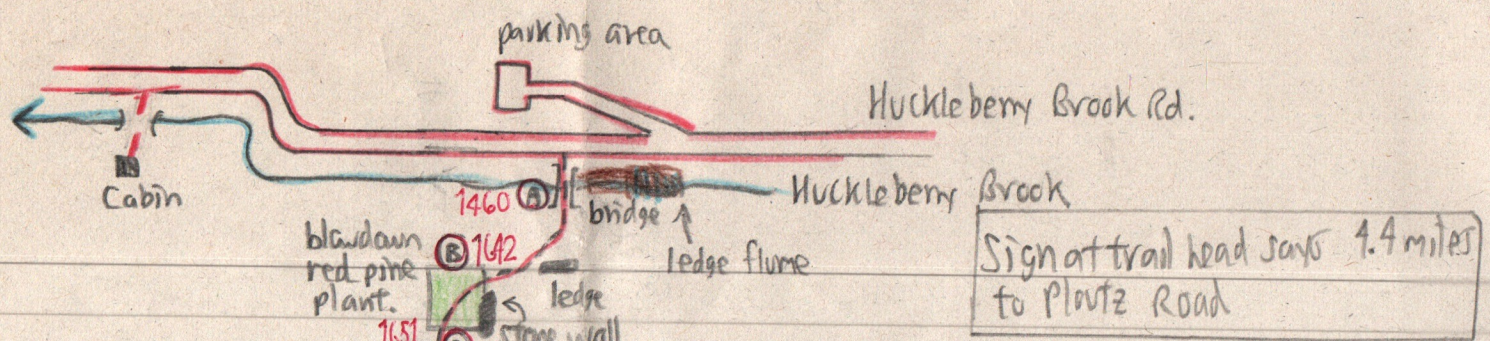 parking area
Huckleberry Brook Rd.
Cabin
1460 A
bridge
Huckleberry Brook
ledge flume
B 1642
blowdown
red pine
plant.
ledge
stone wall
1651
Sign at trail head says 4.4 miles
to Ploutz Road